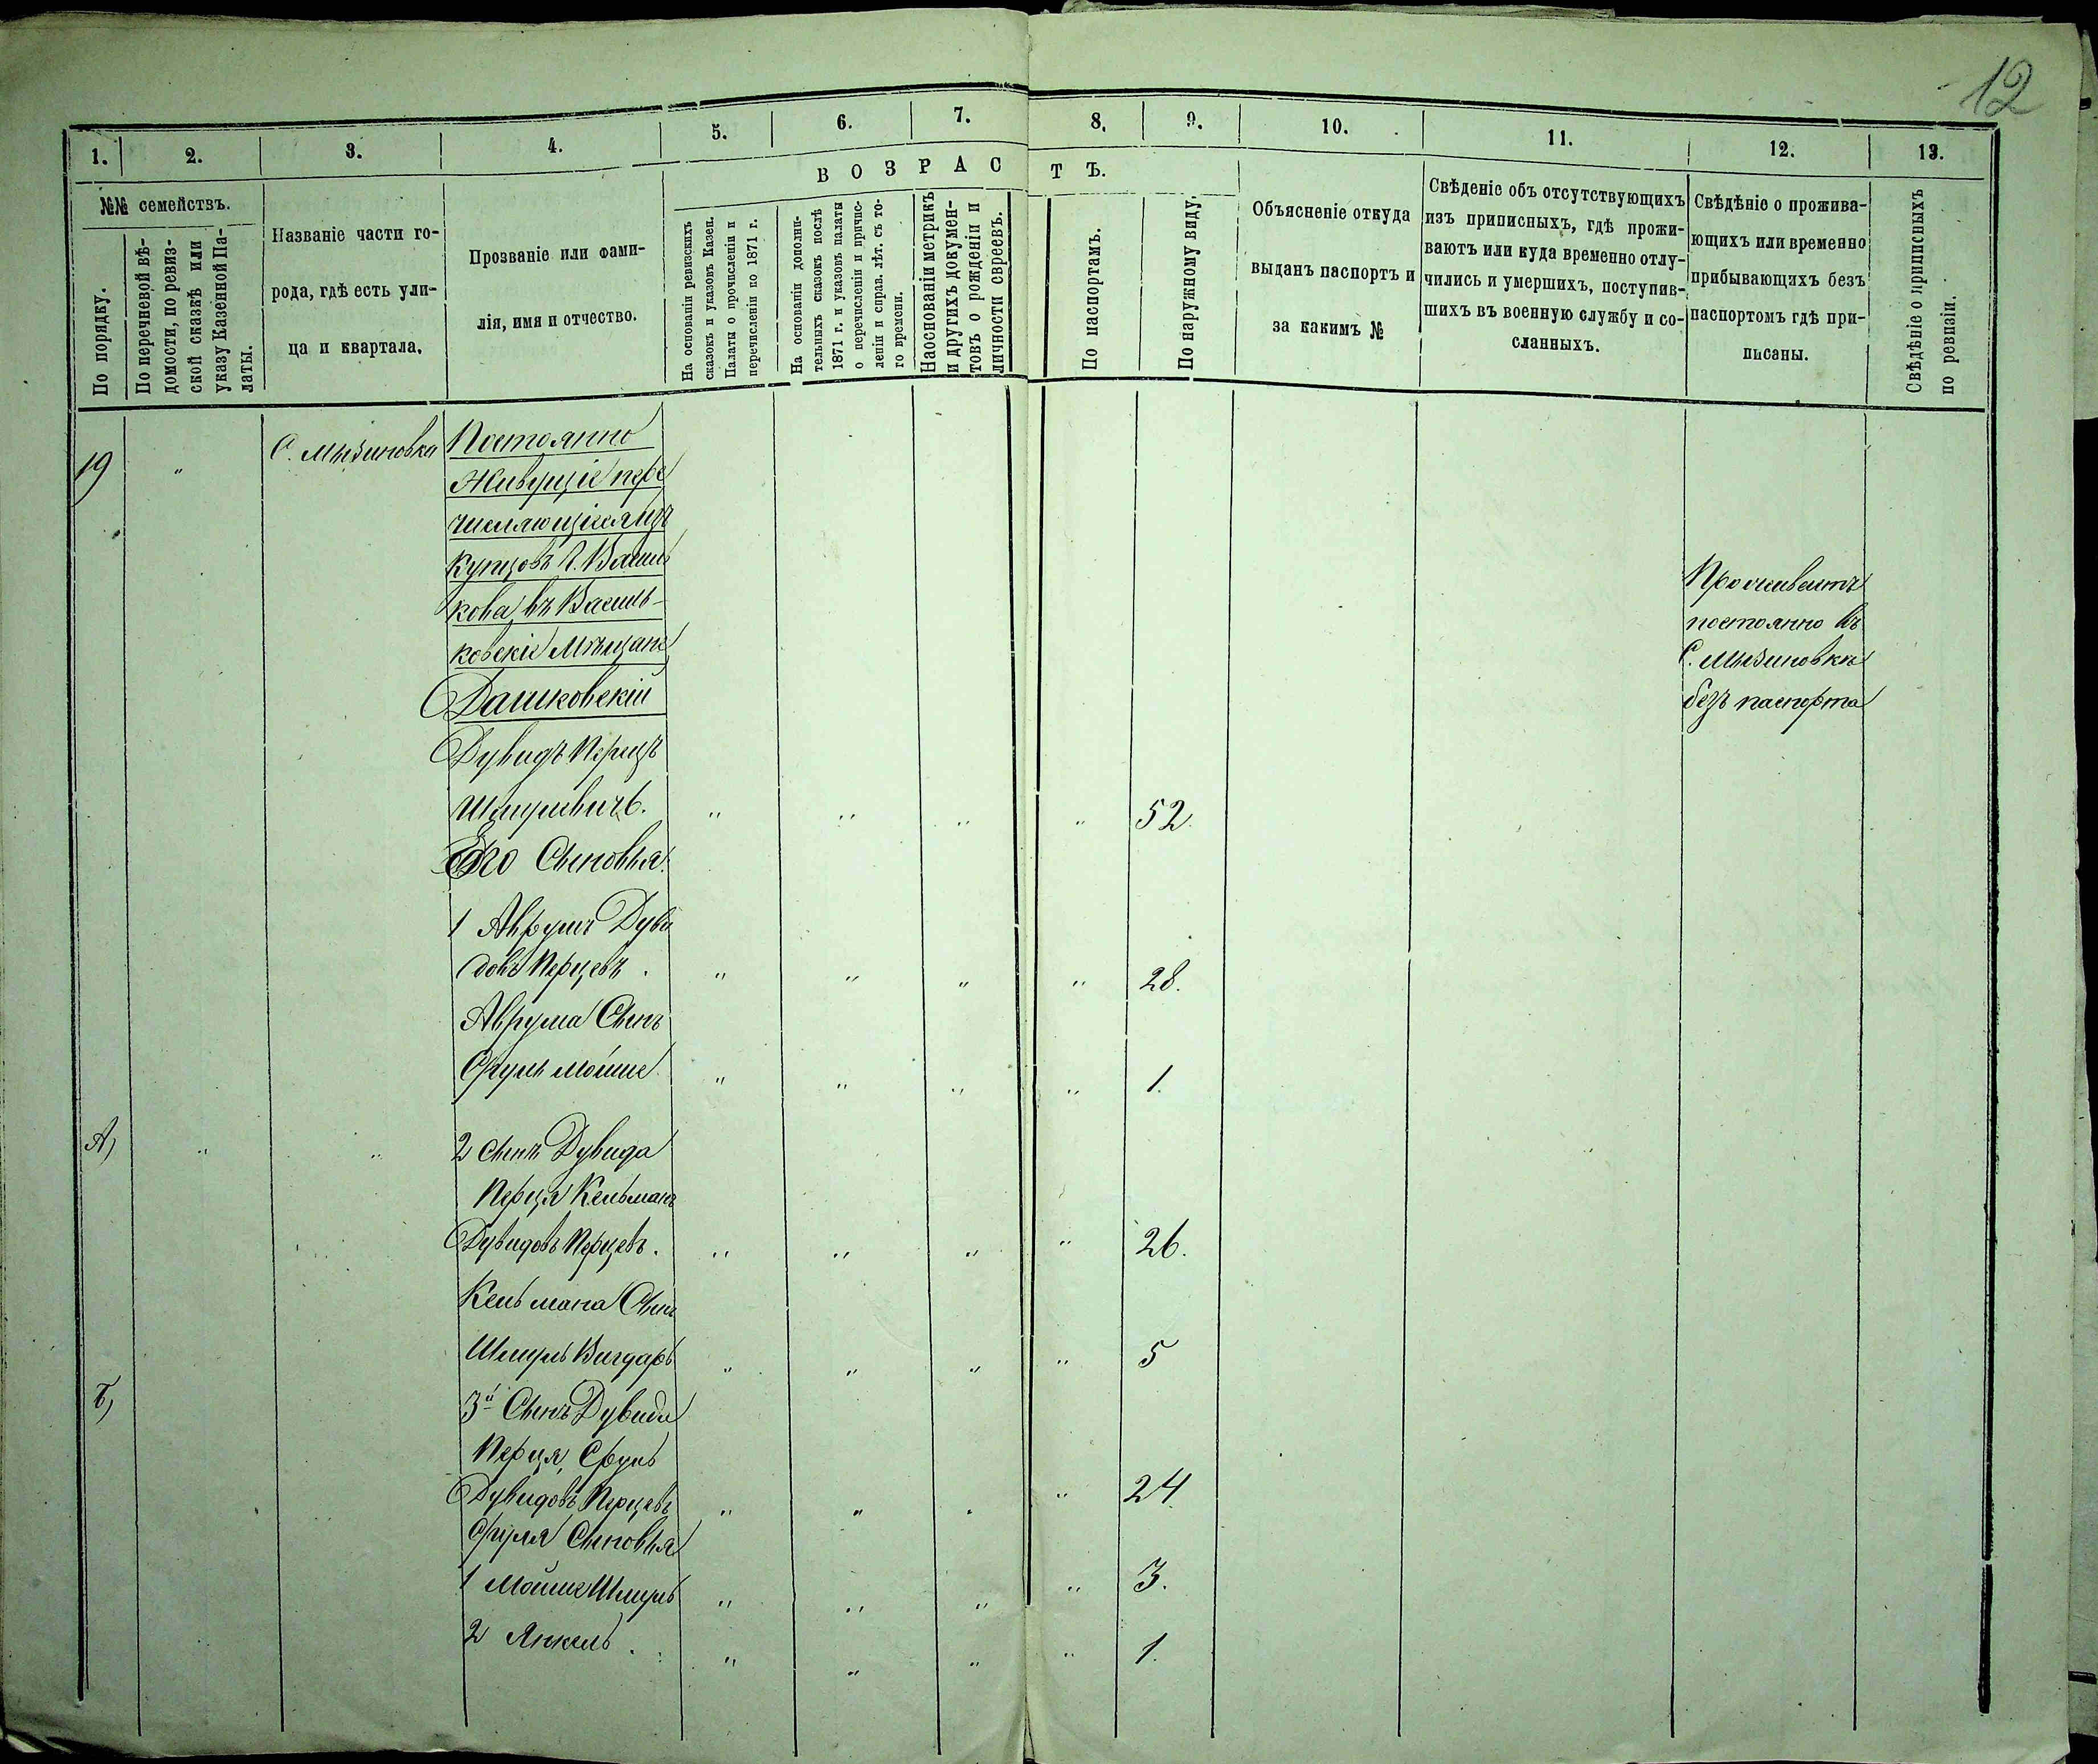 12
1. 2. 3. 4. 5. 6. 7. 8. 9. 10. 11. 12. 13.
№№ семействъ.
По порядку.
По перечневой вѣ-
домости, по ревиз-
ской сказкѣ или
указу Казенной Па-
латы.
Названіе части го-
рода, гдѣ есть ули-
ца и квартала.
Прозваніе или фами-
лія, имя и отчество.
ВОЗРАСТЪ.
На основаніи ревизскихъ
сказокъ и указовъ Казен.
Палати о прочисленіи и
перечисленіи по 1871 г.
На основаніи дополни-
тельныхъ сказокъ послѣ
1871 г. и указовъ палаты
о перечисленіи и причис-
леніи и справ. лѣт. съ то-
го времени.
На основаніи метрикъ
и другихъ докумен-
товъ о рожденіи и
личности евреевъ.
По паспортамъ.
По наружному виду.
Объясненіе откуда
выданъ паспортъ и
за какимъ №
Свѣденіе объ отсутствующихъ
изъ приписныхъ, гдѣ прожи-
ваютъ или куда временно отлу-
чились и умершихъ, поступив-
шихъ въ военную службу и со-
сланныхъ.
Свѣдѣніе о прожива-
ющихъ или временно
прибывающихъ безъ
паспортомъ гдѣ при-
писаны.
Свѣдѣніе о приписныхъ
по ревизіи.
19 " С. Мызиновка Постоянно
Живущіе пере
числяющіеся изъ
Купцовъ Г. Василь
кова въ Василь-
ковскіе Мѣщане
Дашковскій
Дувидъ Перецъ
Шмулевичъ. " " " " 52.
Его Сыновья.
1 Аврумъ Дуви
довъ Перцевъ. " " " " 28.
Аврума Сынъ
Сруль Мойше " " " " 1.
А) " " 2 Сынъ Дувида
Перця Кельманъ
Дувидовъ Перцевъ. " " " " 26.
Кельмана Сынъ
Шмуль Вигдаръ " " " " 5
Б) 3й Сынъ Дувида
Перця, Сруль
Дувидовъ Перцевъ " " " " 24.
Сруля Сыновья
1 Мойше Шмуль " " " " 3.
2 Янкель. " " " " 1.
Проживаетъ
постоянно въ
С. Мызиновкѣ
безъ паспорта